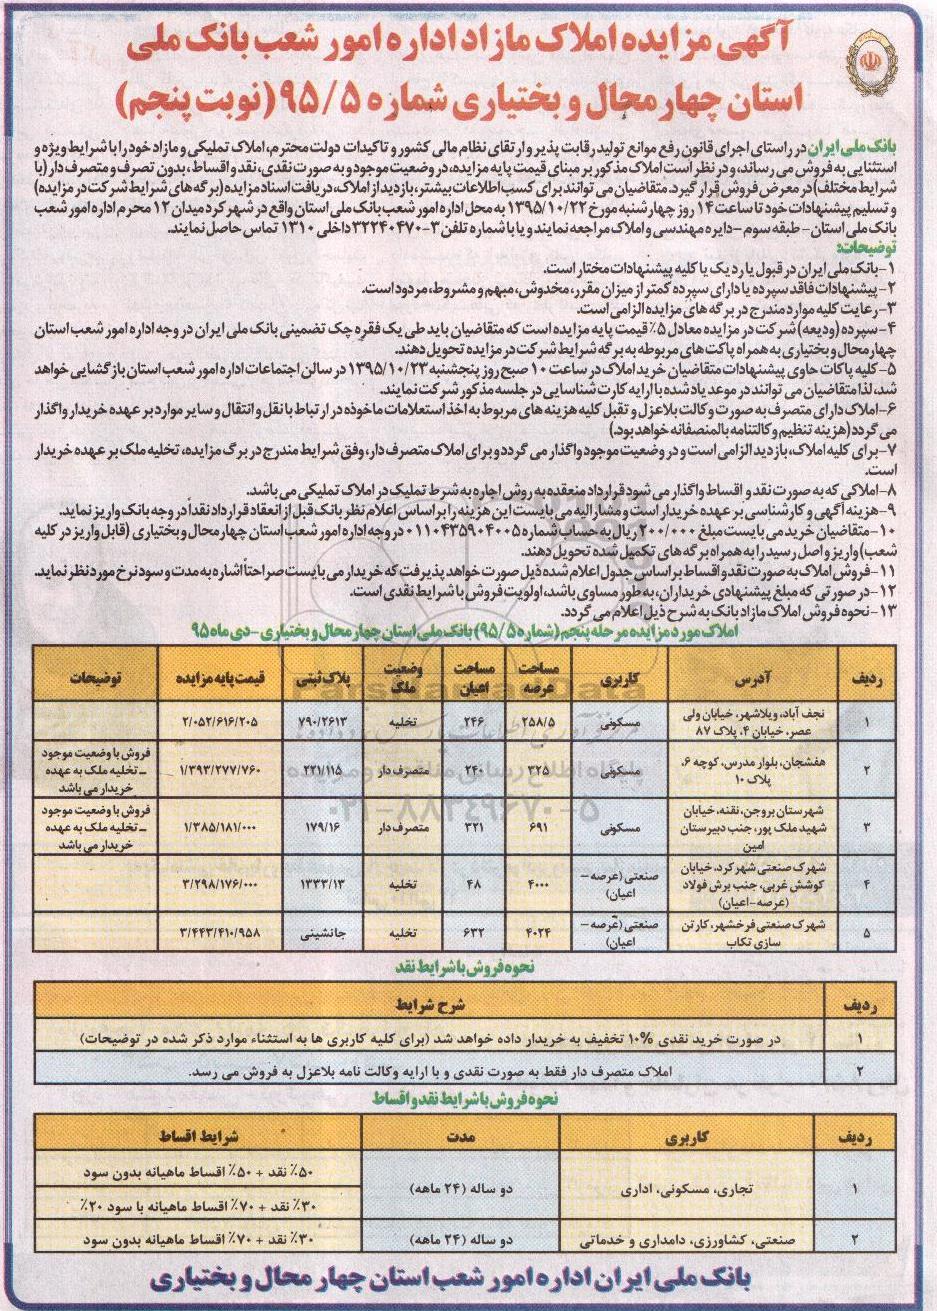 آگهی مزایده املاک مازاد اداره امور شعب بانک ملی
استان چهارمحال و بختیاری شماره ۹۵/۵ (نوبت پنجم)
بانک ملی ایران در راستای اجرای قانون رفع موانع تولید رقابت پذیر و ارتقای نظام مالی کشور و تاکیدات دولت محترم، املاک تملیکی و مازاد خود را با شرایط ویژه و
استثنایی به فروش می رساند، و در نظر است املاک مذکور بر مبنای قیمت پایه مزایده، در وضعیت موجود و به صورت نقدی، نقد و اقساط، بدون تصرف و متصرف دار (با
شرایط مختلف) در معرض فروش قرار گیرد. متقاضیان می توانند برای کسب اطلاعات بیشتر، بازدید از املاک، دریافت اسناد مزایده (برگه های شرایط شرکت در مزایده)
و تسلیم پیشنهادات خود تا ساعت ۱۴ روز چهارشنبه مورخ ۱۳۹۵/۱۰/۲۲ به محل اداره امور شعب بانک ملی استان واقع در شهر کرد میدان ۱۲ محرم اداره امور شعب
بانک ملی استان - طبقه سوم - دایره مهندسی و املاک مراجعه نمایند و یا با شماره تلفن ۳-۳۲۲۴۰۴۷۰ داخلی ۱۳۱۰ تماس حاصل نمایند.
توضیحات:
۱- بانک ملی ایران در قبول یا رد یک یا کلیه پیشنهادات مختار است.
۲- پیشنهادات فاقد سپرده یا دارای سپرده کمتر از میزان مقرر، مخدوش، مبهم و مشروط، مردود است.
۳- رعایت کلیه موارد مندرج در برگه های مزایده الزامی است.
۴- سپرده (ودیعه) شرکت در مزایده معادل ۵٪ قیمت پایه مزایده است که متقاضیان باید طی یک فقره چک تضمینی بانک ملی ایران در وجه اداره امور شعب استان
چهارمحال و بختیاری به همراه پاکت های مربوطه به برگه شرایط شرکت در مزایده تحویل دهند.
۵- کلیه پاکات حاوی پیشنهادات متقاضیان خرید املاک در ساعت ۱۰ صبح روز پنجشنبه ۱۳۹۵/۱۰/۲۳ در سالن اجتماعات اداره امور شعب استان بازگشایی خواهد
شد، لذا متقاضیان می توانند در موعد یاد شده با ارایه کارت شناسایی در جلسه مذکور شرکت نمایند.
۶- املاک دارای متصرف به صورت وکالت بلاعزل و تقبل کلیه هزینه های مربوط به اخذ استعلامات ماخوذه در ارتباط با نقل و انتقال و سایر موارد بر عهده خریدار واگذار
می گردد (هزینه تنظیم وکالتنامه بالمنصفانه خواهد بود.)
۷- برای کلیه املاک، بازدید الزامی است و در وضعیت موجود واگذار می گردد و برای املاک متصرف دار، وفق شرایط مندرج در برگ مزایده، تخلیه ملک بر عهده خریدار
است.
۸- املاکی که به صورت نقد و اقساط واگذار می شود قرارداد منعقده به روش اجاره به شرط تملیک در املاک تملیکی می باشد.
۹- هزینه آگهی و کارشناسی بر عهده خریدار است و مشارالیه می بایست این هزینه را بر اساس اعلام نظر بانک قبل از انعقاد قرارداد نقداً در وجه بانک واریز نماید.
۱۰- متقاضیان خرید می بایست مبلغ ۲۰۰/۰۰۰ ریال به حساب شماره ۰۱۱۰۴۳۵۹۰۴۰۰۵ در وجه اداره امور شعب استان چهارمحال و بختیاری (قابل واریز در کلیه
شعب) واریز و اصل رسید را به همراه برگه های تکمیل شده تحویل دهند.
۱۱- فروش املاک به صورت نقد و اقساط بر اساس جدول اعلام شده ذیل صورت خواهد پذیرفت که خریدار می بایست صراحتاً اشاره به مدت و سود نرخ مورد نظر نماید.
۱۲- در صورتی که مبلغ پیشنهادی خریداران، به طور مساوی باشد، اولویت فروش با شرایط نقدی است.
۱۳- نحوه فروش املاک مازاد بانک به شرح ذیل اعلام می گردد.
املاک مورد مزایده مرحله پنجم (شماره ۹۵/۵) بانک ملی استان چهارمحال و بختیاری - دی ماه ۹۵
ردیف آدرس کاربری مساحت عرصه مساحت اعیان وضعیت ملک پلاک ثبتی قیمت پایه مزایده توضیحات
۱ نجف آباد، ویلاشهر، خیابان ولی عصر، خیابان ۴، پلاک ۸۷ مسکونی ۲۵۸/۵ ۲۴۶ تخلیه ۷۹۰/۲۶۱۳ ۲/۰۵۲/۶۱۶/۲۰۵
۲ هفشجان، بلوار مدرس، کوچه ۶، پلاک ۱۰ مسکونی ۳۲۵ ۲۴۰ متصرف دار ۲۲۱/۱۱۵ ۱/۳۹۳/۲۷۷/۷۶۰ فروش با وضعیت موجود - تخلیه ملک به عهده خریدار می باشد
۳ شهرستان بروجن، نقنه، خیابان شهید ملک پور، جنب دبیرستان امین مسکونی ۶۹۱ ۳۲۱ متصرف دار ۱۷۹/۱۶ ۱/۳۸۵/۱۸۱/۰۰۰ فروش با وضعیت موجود - تخلیه ملک به عهده خریدار می باشد
۴ شهرک صنعتی شهرکرد، خیابان کوشش غربی، جنب برش فولاد (عرصه-اعیان) صنعتی (عرصه-اعیان) ۴۰۰۰ ۴۸ تخلیه ۱۳۳۳/۱۳ ۳/۲۹۸/۱۷۶/۰۰۰
۵ شهرک صنعتی فرخشهر، کارتن سازی تکاب صنعتی (عرصه-اعیان) ۴۰۲۴ ۶۳۲ تخلیه جانشینی ۳/۴۴۳/۴۱۰/۹۵۸
نحوه فروش با شرایط نقد
ردیف شرح شرایط
۱ در صورت خرید نقدی ۱۰% تخفیف به خریدار داده خواهد شد (برای کلیه کاربری ها به استثناء موارد ذکر شده در توضیحات)
۲ املاک متصرف دار فقط به صورت نقدی و با ارایه وکالت نامه بلاعزل به فروش می رسد.
نحوه فروش با شرایط نقد و اقساط
ردیف کاربری مدت شرایط اقساط
۱ تجاری، مسکونی، اداری دو ساله (۲۴ ماهه) ۵۰٪ نقد + ۵۰٪ اقساط ماهیانه بدون سود
۳۰٪ نقد + ۷۰٪ اقساط ماهیانه با سود ۲۰٪
۲ صنعتی، کشاورزی، دامداری و خدماتی دو ساله (۲۴ ماهه) ۳۰٪ نقد + ۷۰٪ اقساط ماهیانه بدون سود
بانک ملی ایران اداره امور شعب استان چهار محال و بختیاری